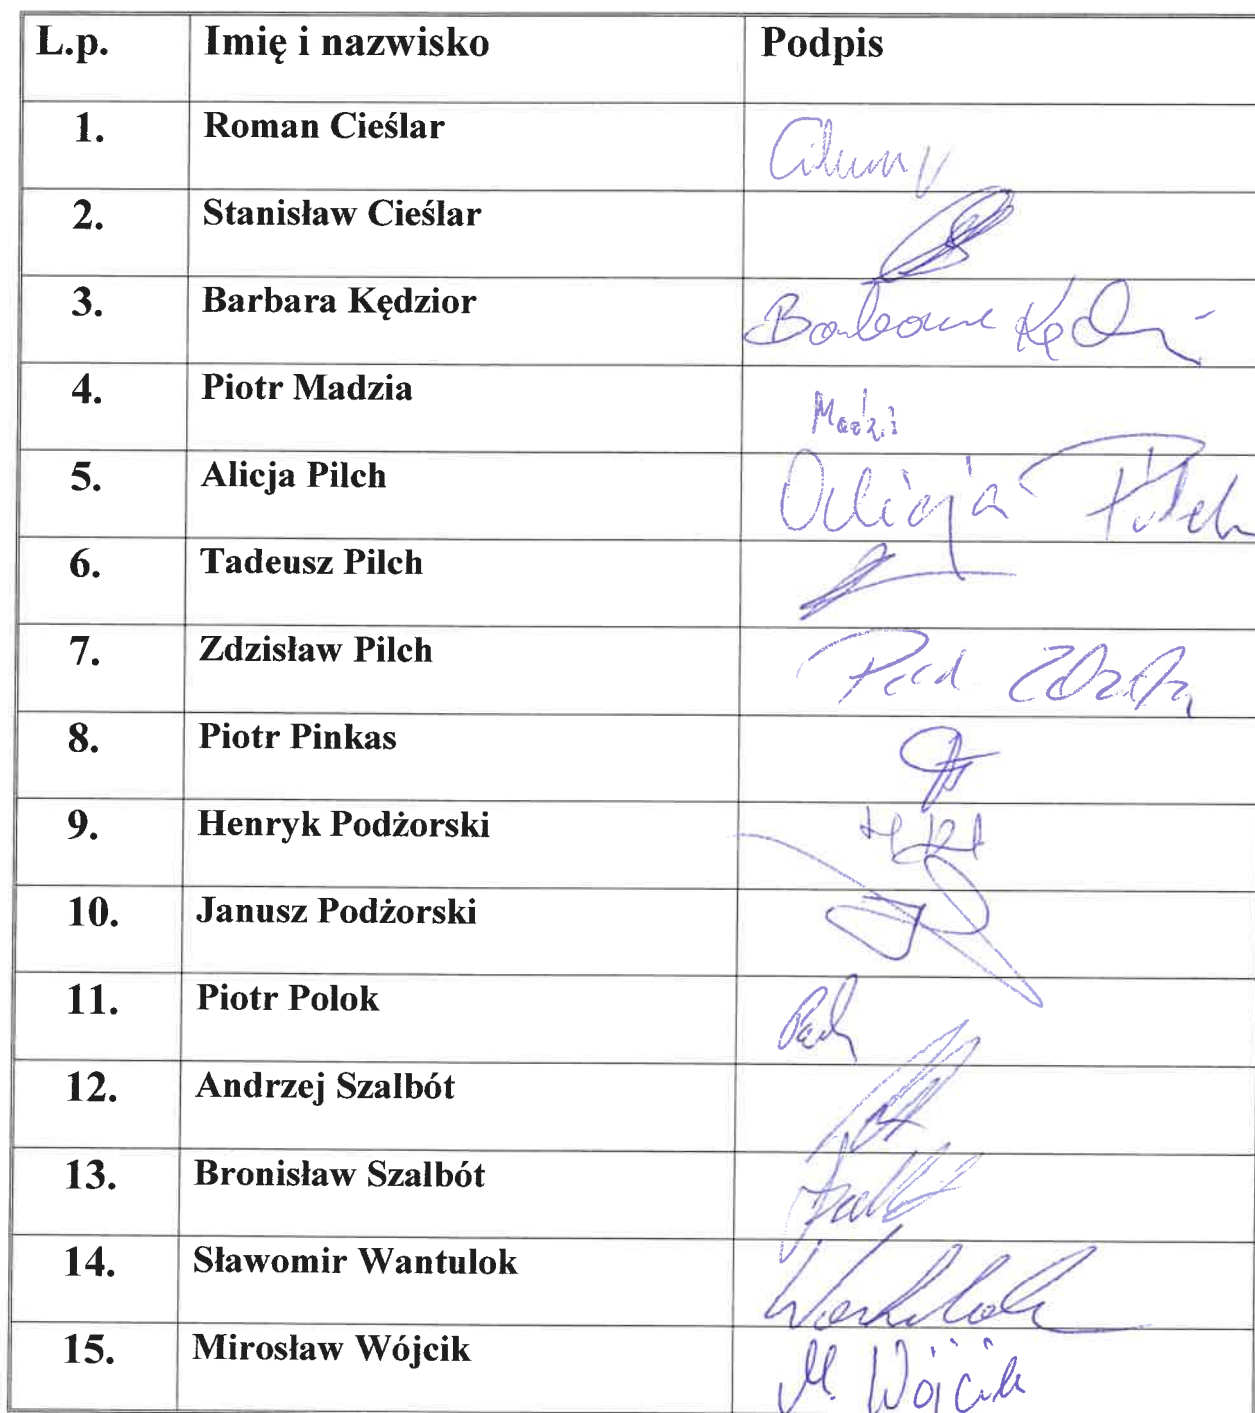 L.p. Imię i nazwisko Podpis
1. Roman Cieślar
2. Stanisław Cieślar
3. Barbara Kędzior Barbara
4. Piotr Madzia
5. Alicja Pilch Alicja Pilch
6. Tadeusz Pilch
7. Zdzisław Pilch
8. Piotr Pinkas
9. Henryk Podżorski
10. Janusz Podżorski
11. Piotr Polok
12. Andrzej Szalbót
13. Bronisław Szalbót
14. Sławomir Wantulok Wantulok
15. Mirosław Wójcik M. Wójcik